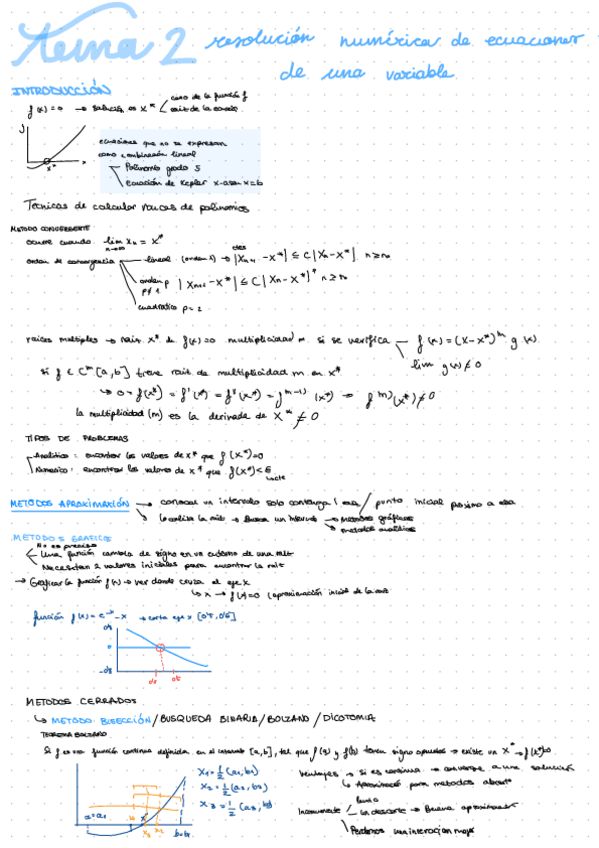 tema 2 resolución numérica de ecuaciones
de una variable
INTRODUCCIÓN
f(x)=0 → solución es x* cero de la función f
raíz de la ecuación
y
x* x
ecuaciones que no se expresan
como combinación lineal
Polinomio grado 5
Ecuación de Kepler x-a sen x=b
Técnicas de calcular raíces de polinomios
METODO CONVERGENTE
ocurre cuando lim xn = x*
n→∞
orden de convergencia lineal (orden 1) → |Xn+1 - X*| ≤ C |Xn - X*| n ≥ n0
cte
orden p |Xn+1 - X*| ≤ C |Xn - X*|p n ≥ n0
p≠1
cuadratico p=2
raices multiples → raiz x* de f(x)=0 multiplicidad m si se verifica f(x)=(x-x*)m g(x)
lim g(x)≠0
Si f ∈ Cm [a,b] tiene raiz de multiplicidad m en x*
→ 0 = f(x*) = f'(x*) = f''(x*) = f m-1) (x*) → f m) (x*) ≠ 0
la multiplicidad (m) es la derivada de x* ≠ 0
TIPOS DE PROBLEMAS
Analitico: encontrar los valores de x* que f(x*)=0
Numerico: encontrar los valores de x* que f(x*)<ε
cte
METODOS APROXIMACIÓN → conocer un intervalo solo contenga 1 raiz / punto inicial proximo a ella
Localiza la raiz → Busca un intervalo metodos gráficos
metodos analiticos
METODOS GRAFICOS
No es preciso
Una función cambia de signo en un entorno de una raiz
Necesitan 2 valores iniciales para encontrar la raiz
→ Graficar la función f(x) → ver donde cruza el eje x
→ x → f(x)=0 (aproximación inicial de la raiz
función f(x) = e-x - x → corta eje x [0'5, 0'6]
0
METODOS CERRADOS
→ METODO BISECCIÓN / BUSQUEDA BINARIA / BOLZANO / DICOTOMIA
TEOREMA BOLZANO
Si f es una función continua definida en el intervalo [a,b], tal que f(a) y f(b) tienen signo opuestos → existe un x* → f(x*)=0
x1 = 1/2 (a1, b1)
x2 = 1/2 (a2, b2)
x3 = 1/2 (a3, b3)
a=a1 x3 x2 b=b1
Ventajas → Si es continua → converge a una solución
→ Aproximació para metodos abiertos
Inconveniente lento
→ Buena aproximacion